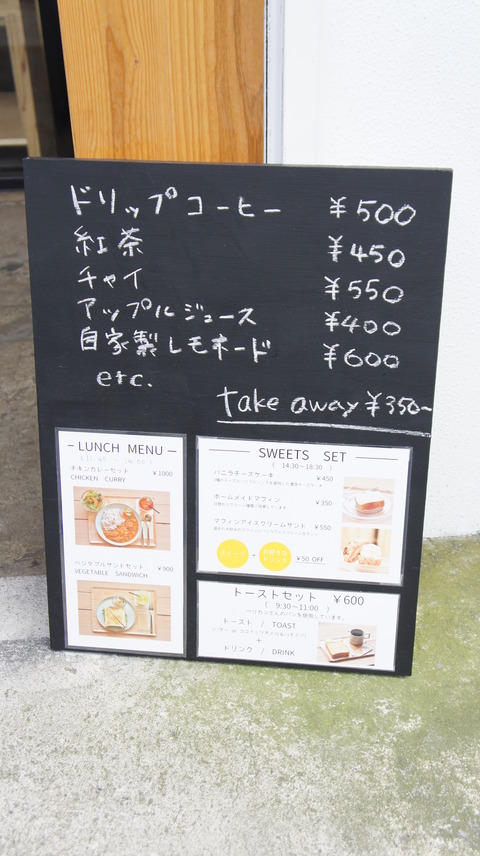 ドリップコーヒー ¥500
紅茶 ¥450
チャイ ¥550
アップルジュース ¥400
自家製レモネード ¥600
etc.
take away ¥350~
LUNCH MENU
チキンカレーセット ¥1000
CHICKEN CURRY
ベジタブルサンドセット ¥900
VEGETABLE SANDWICH
SWEETS SET
( 14:30~18:30 )
バニラチーズケーキ ¥450
ホームメイドマフィン ¥350
マフィンアイスクリームサンド ¥550
スイーツ + お好きなドリンク ¥50 OFF
トーストセット ¥600
( 9:30~11:00 )
トースト / TOAST
+
ドリンク / DRINK